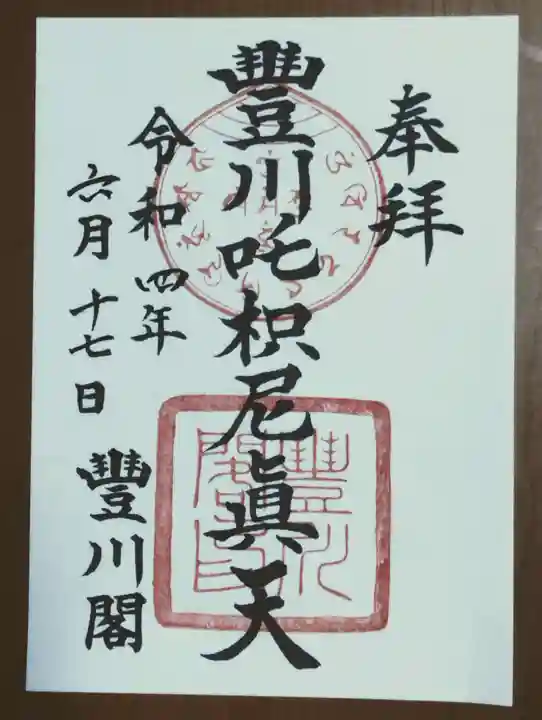 奉拝
豐川吒枳尼眞天
令和四年
六月十七日
豐川閣
豐川閣印